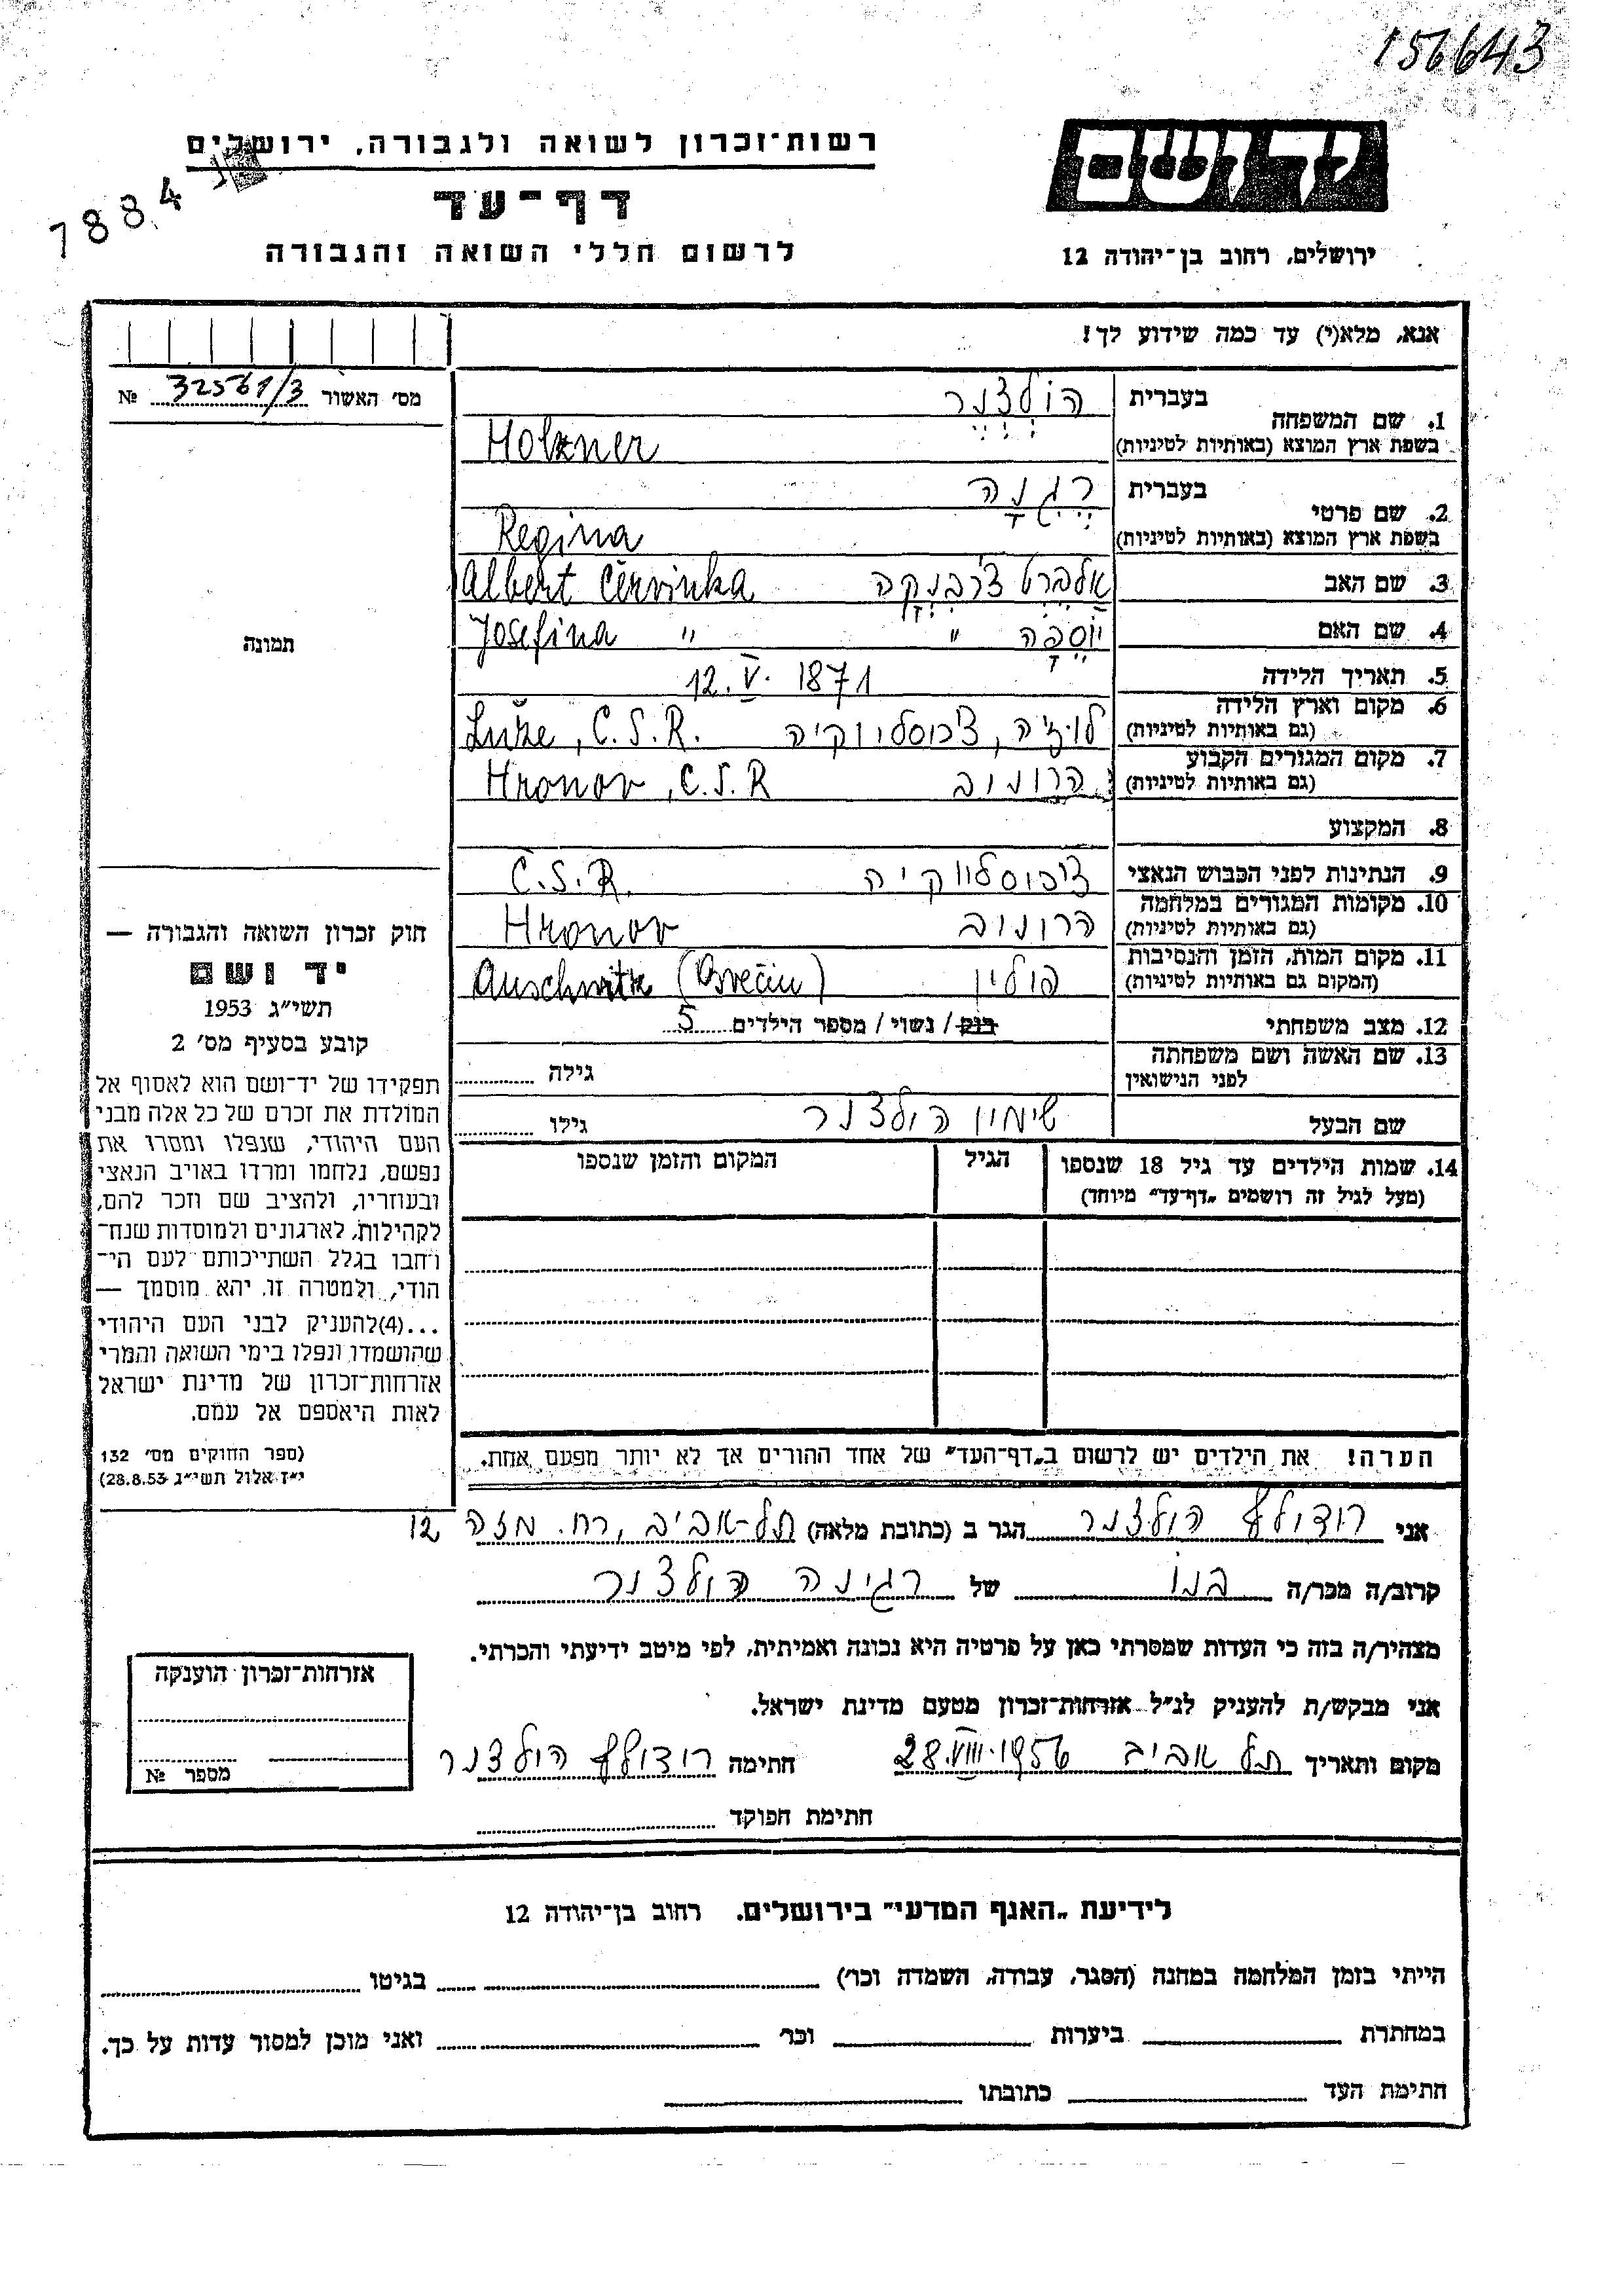 156643
יד ושם
רשות־זכרון לשואה ולגבורה, ירושלים
7884
דף־עד
ירושלים, רחוב בן־יהודה 12
לרשום חללי השואה והגבורה
אנא, מלא(י) עד כמה שידוע לך!
מס׳ האשור 32561/3 №
1. שם המשפחה
בעברית הולצנר
בשפת ארץ המוצא (באותיות לטיניות) Holzner
2. שם פרטי
בעברית רגינה
בשפת ארץ המוצא (באותיות לטיניות) Regina
3. שם האב אלברט צ'רבנקה Albert Červinka
4. שם האם יוספה " Josefina "
5. תאריך הלידה 12. V. 1871
6. מקום וארץ הלידה לוז'ה, צ'כוסלווקיה Luže, C.S.R.
(גם באותיות לטיניות)
7. מקום המגורים הקבוע הרונוב Hronov, C.S.R
(גם באותיות לטיניות)
8. המקצוע
9. הנתינות לפני הכבוש הנאצי צ'כוסלווקיה C.S.R.
10. מקומות המגורים במלחמה הרונוב Hronov
(גם באותיות לטיניות)
11. מקום המות, הזמן והנסיבות פולין Auschwitz (Osvěčin)
(המקום גם באותיות לטיניות)
12. מצב משפחתי רוק / נשוי / מספר הילדים 5
13. שם האשה ושם משפחתה
לפני הנישואין
גילה
שם הבעל שימון הולצנר גילו
14. שמות הילדים עד גיל 18 שנספו
(מעל לגיל זה רושמים „דף־עד” מיוחד)
הגיל
המקום והזמן שנספו
תמונה
חוק זכרון השואה והגבורה —
יד ושם
תשי״ג 1953
קובע בסעיף מס׳ 2
תפקידו של יד־ושם הוא לאסוף אל
המולדת את זכרם של כל אלה מבני
העם היהודי, שנפלו ומסרו את
נפשם, נלחמו ומרדו באויב הנאצי
ובעוזריו, ולהציב שם וזכר להם,
לקהילות, לארגונים ולמוסדות שנח־
רחבו בגלל השתייכותם לעם הי־
הודי, ולמטרה זו יהא מוסמך —
...(4)להעניק לבני העם היהודי
שהושמדו ונפלו בימי השואה והמרי
אזרחות־זכרון של מדינת ישראל
לאות היאספם אל עמם.
(ספר החוקים מס׳ 132
י״ז אלול תשי״ג 28.8.53)
הערה! את הילדים יש לרשום ב„דף־העד” של אחד ההורים אך לא יותר מפעם אחת.
אני רודולף הולצנר הגר ב (כתובת מלאה) תל-אביב, רח. מזה 12
קרוב/ה מכר/ה בנו של רגינה הולצנר
מצהיר/ה בזה כי העדות שמסרתי כאן על פרטיה היא נכונה ואמיתית, לפי מיטב ידיעתי והכרתי.
אני מבקש/ת להעניק לנ״ל אזרחות־זכרון מטעם מדינת ישראל.
מקום ותאריך תל אביב 28.VIII.1956 חתימה רודולף הולצנר
חתימת הפוקד
אזרחות־זכרון הוענקה
מספר №
לידיעת „האגף המדעי” בירושלים. רחוב בן־יהודה 12
הייתי בזמן המלחמה במחנה (הסגר, עבודה, השמדה וכו׳) בגיטו
במחתרת ביערות וכו׳ ואני מוכן למסור עדות על כך.
חתימת העד כתובתו